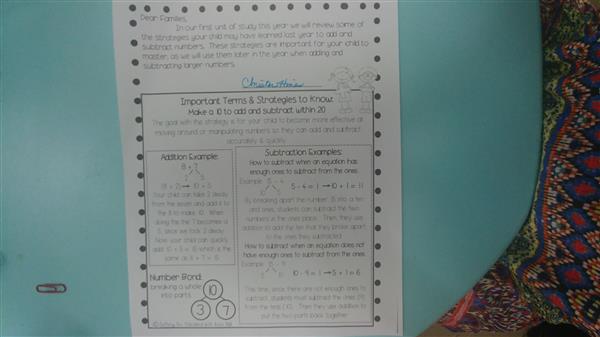 Dear Families,
In our first unit of study this year we will review some of
the strategies your child may have learned last year to add and
subtract numbers. These strategies are important for your child to
master, as we will use them later in the year when adding and
subtracting larger numbers.
Important Terms & Strategies to Know:
Make a 10 to add and subtract within 20
The goal with this strategy is for your child to become more effective at
moving around or manipulating numbers so they can add and subtract
accurately & quickly.
Addition Example:
8 + 7
2 5
(8 + 2) → 10 + 5
Your child can take 2 away
from the seven and add it to
the 8 to make 10. When
doing this the 7 becomes a
5, since we took 2 away.
Now your child can quickly
add 10 + 5 = 15 which is the
same as 8 + 7 = 15
Number Bond:
breaking a whole
into parts
10
3 7
Subtraction Examples:
How to subtract when an equation has
enough ones to subtract from the ones.
Example: 15 - 4
10 5 5 - 4 = 1 → 10 + 1 = 11
By breaking apart the number 15 into a ten
and ones, students can subtract the two
numbers in the ones place. Then, they use
addition to add the ten that they broke apart
to the ones they subtracted.
How to subtract when an equation does not
have enough ones to subtract from the ones.
Example: 15 - 9
5 10 10 - 9 = 1 → 5 + 1 = 6
This time, since there are not enough ones to
subtract, students must subtract the ones (9)
from the tens (10). Then they use addition to
put the two parts back together.